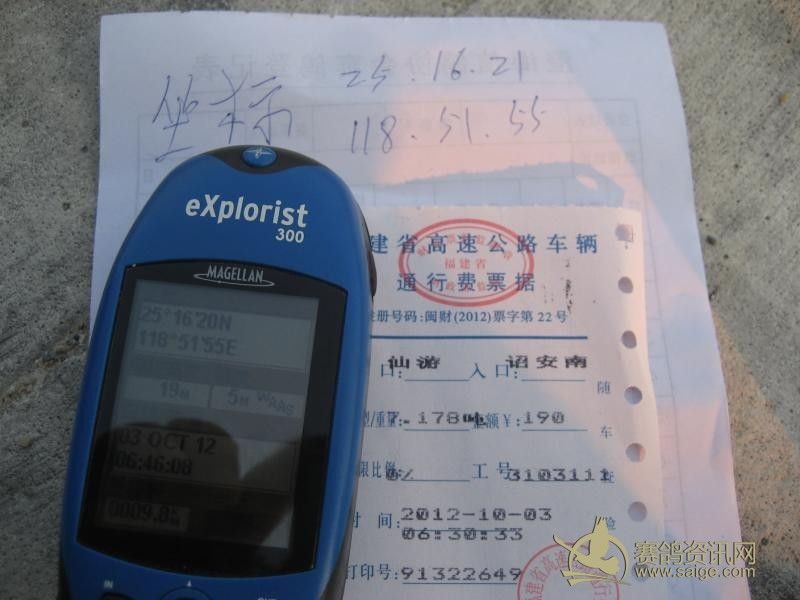 坐标 25.16.21
118.51.55
eXplorist
300
MAGELLAN
25°16'20N
118°51'55E
19M 5M WAAS
03 OCT 12
06:46:08
0009.8
IN
建省高速公路车辆
通行费票据
福建省
注册号码:闽财(2012)票字第22号
口:仙游 入口:诏安南
型/重量:7.178吨 总额¥:190
限比例:0% 工号3103111
时间:2012-10-03
06:30:33
打印号:91322649
随车 验
福建省高速
赛鸽资讯网
www.saige.com